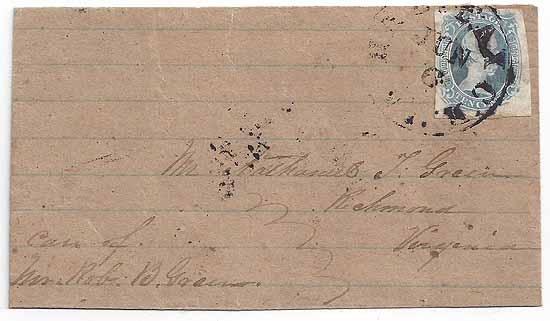 TEN CE
Mr. Nathaniel T. Green
Richmond
Virginia
care of
Mr. Rob. B. Green.